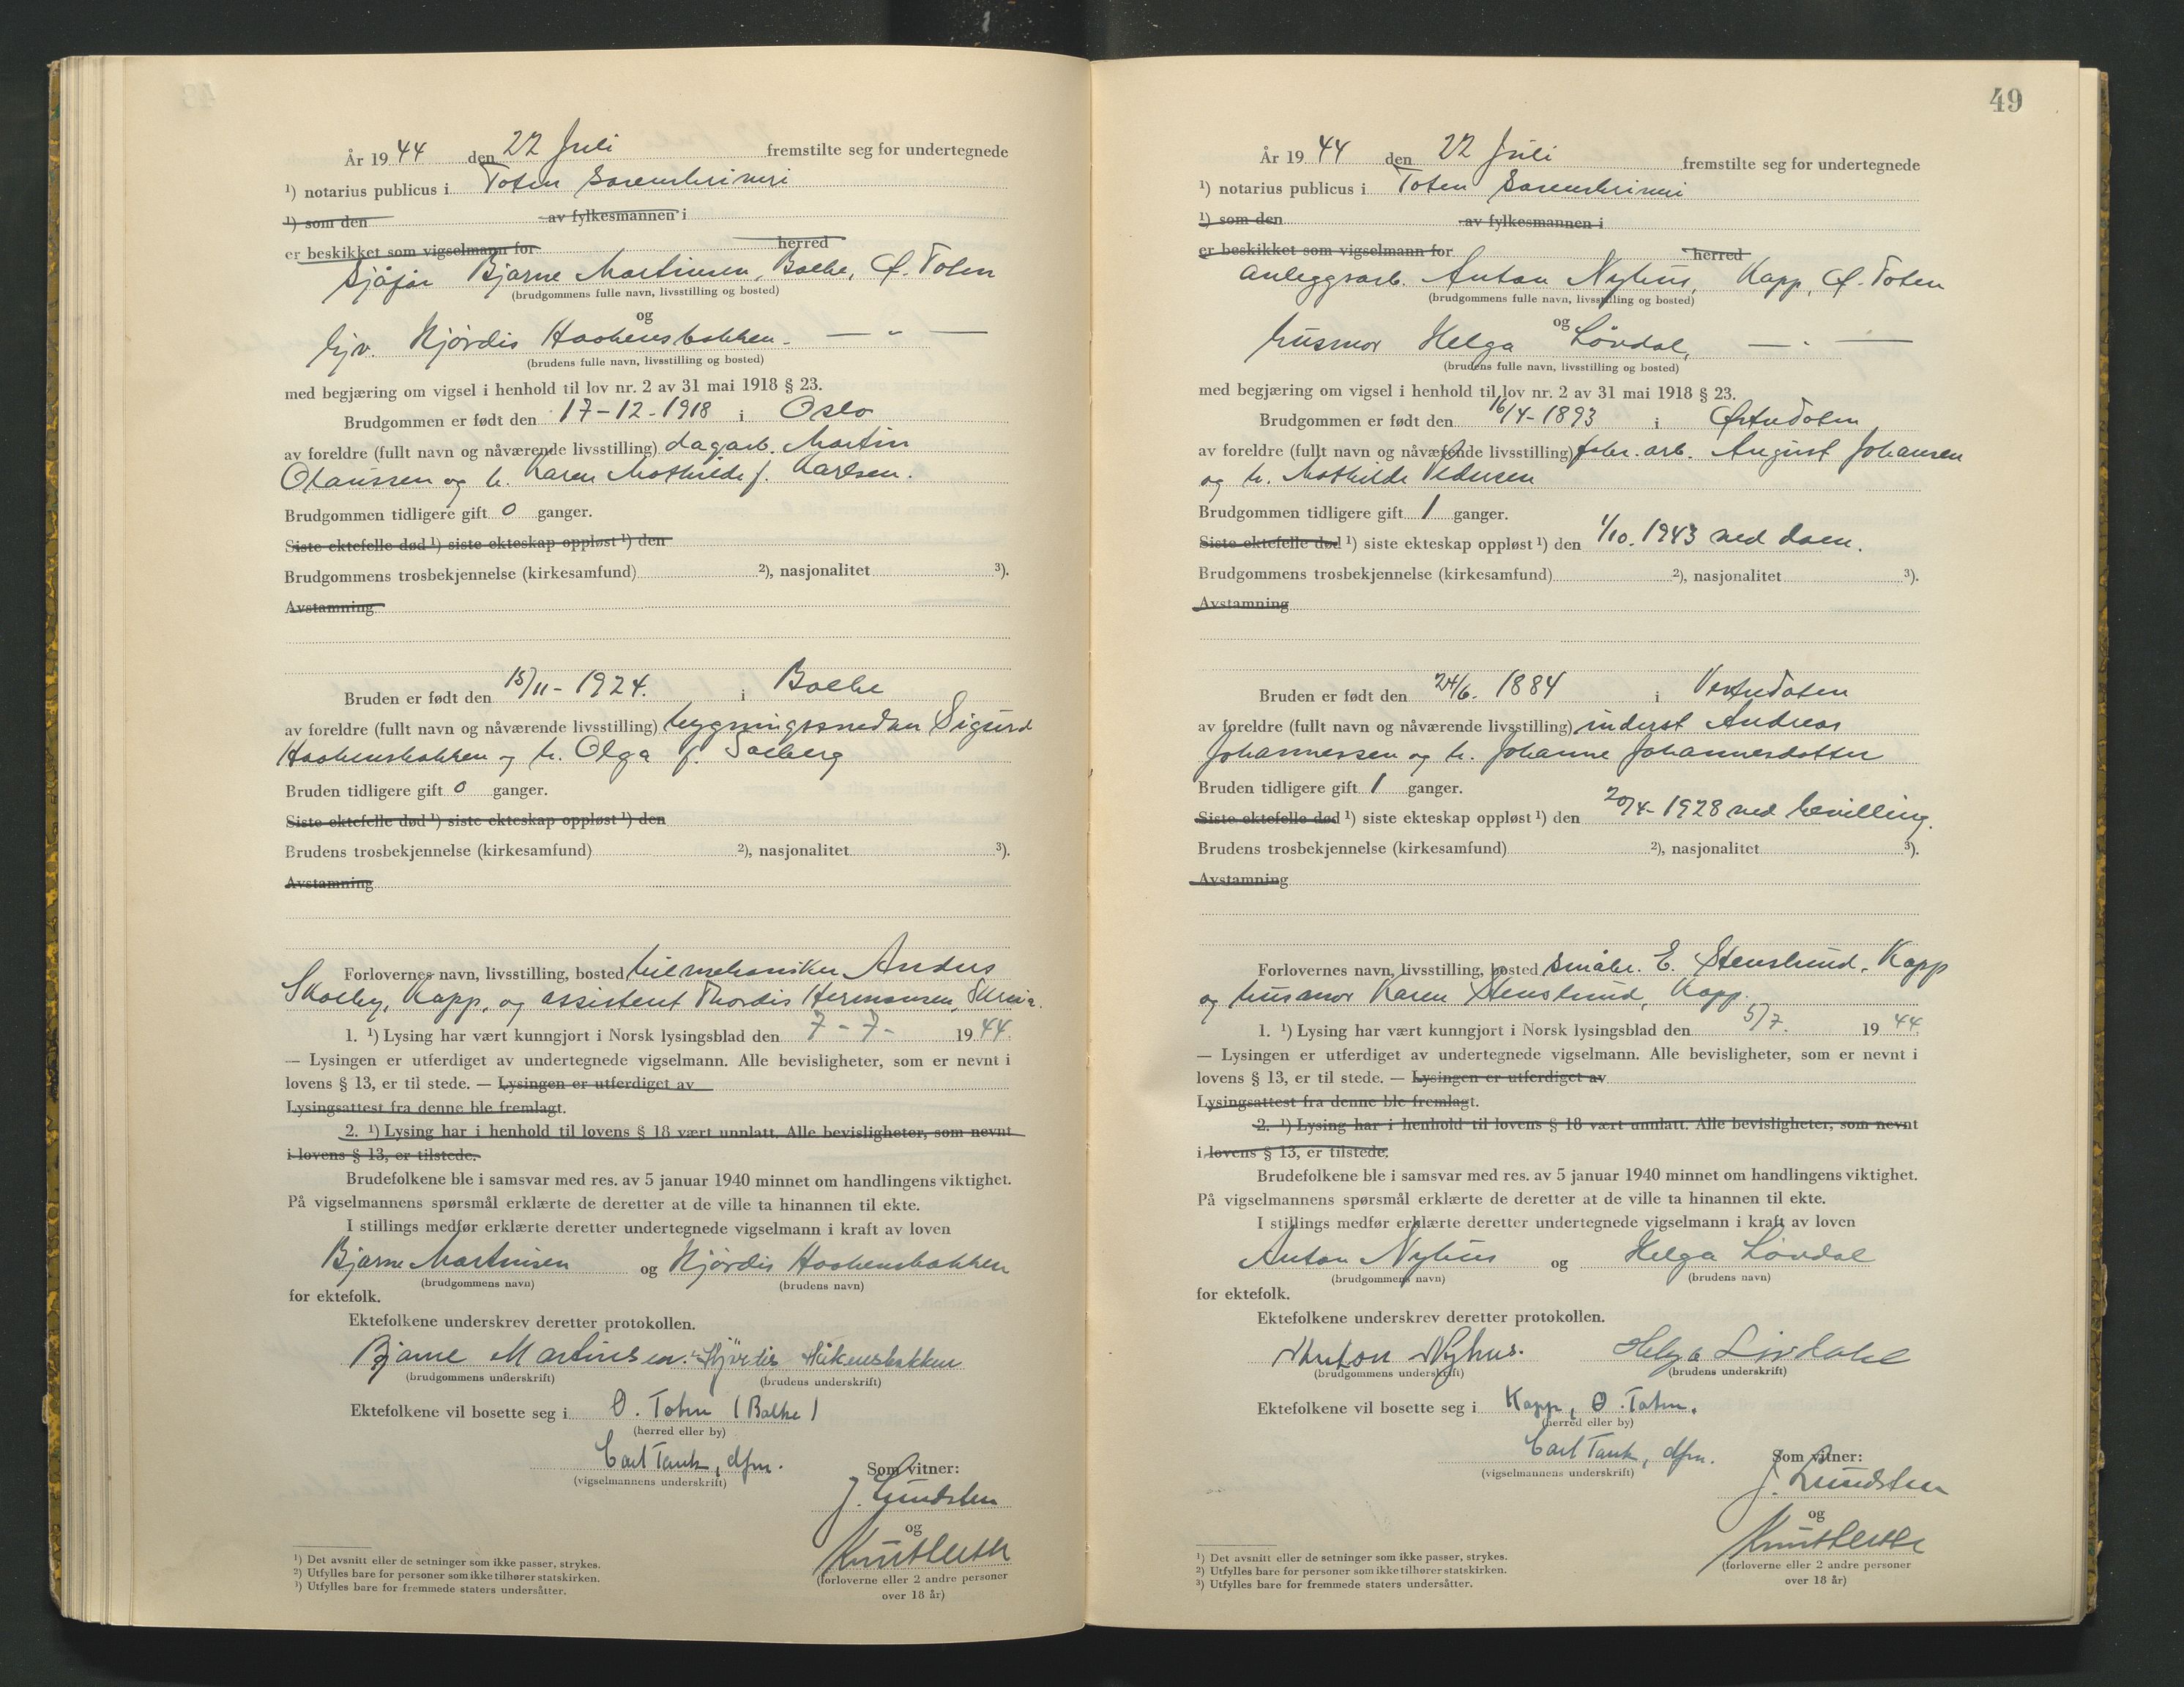 År 1944 den 22 Juli fremstilte seg for undertegnede
¹) notarius publicus i Toten Sorenskriveri
¹) som den av fylkesmannen i
er beskikket som vigselmann for herred
Sjåfør Bjarne Martinsen, Bølke, Ø. Toten
(brudgommens fulle navn, livsstilling og bosted)
og
hjv. Hjørdis Haakensbakken. — " —
(brudens fulle navn, livsstilling og bosted)
med begjæring om vigsel i henhold til lov nr. 2 av 31 mai 1918 § 23.
Brudgommen er født den 17-12-1918 i Oslo
av foreldre (fullt navn og nåværende livsstilling) dagarb. Martin
Olaussen og h. Karen Mathilde f. Karlsen.
Brudgommen tidligere gift 0 ganger.
Siste ektefelle død ¹) siste ekteskap oppløst ¹) den
Brudgommens trosbekjennelse (kirkesamfund) ²), nasjonalitet ³).
Avstamning
Bruden er født den 15/11-1924. i Bølke
av foreldre (fullt navn og nåværende livsstilling) bygningssnedker Sigurd
Haakensbakken og h. Olga f. Solberg
Bruden tidligere gift 0 ganger.
Siste ektefelle død ¹) siste ekteskap oppløst ¹) den
Brudens trosbekjennelse (kirkesamfund) ²), nasjonalitet ³).
Avstamning
Forlovernes navn, livsstilling, bosted bilmekaniker Anders
Skolby, Kapp, og assistent Thordis Hermansen, Skreia.
1. ¹) Lysing har vært kunngjort i Norsk lysingsblad den 7-7- 1944.
— Lysingen er utferdiget av undertegnede vigselmann. Alle bevisligheter, som er nevnt i
lovens § 13, er til stede. — Lysingen er utferdiget av
Lysingsattest fra denne ble fremlagt.
2. ¹) Lysing har i henhold til lovens § 18 vært unnlatt. Alle bevisligheter, som nevnt
i lovens § 13, er tilstede.
Brudefolkene ble i samsvar med res. av 5 januar 1940 minnet om handlingens viktighet.
På vigselmannens spørsmål erklærte de deretter at de ville ta hinannen til ekte.
I stillings medfør erklærte deretter undertegnede vigselmann i kraft av loven
Bjarne Martinsen og Hjørdis Haakensbakken
(brudgommens navn) (brudens navn)
for ektefolk.
Ektefolkene underskrev deretter protokollen.
Bjarne Martinsen. Hjördis Håkensbakken
(brudgommens underskrift) (brudens underskrift)
Ektefolkene vil bosette seg i Ø. Toten (Bølke)
(herred eller by)
Carl Tank, dfm.
(vigselmannens underskrift)
Som vitner:
J. Lundsten
og
(forloverne eller 2 andre personer
over 18 år)
¹) Det avsnitt eller de setninger som ikke passer, strykes.
²) Utfylles bare for personer som ikke tilhører statskirken.
³) Utfylles bare for fremmede staters undersåtter.
49
År 1944 den 22 Juli fremstilte seg for undertegnede
¹) notarius publicus i Toten Sorenskriveri
¹) som den av fylkesmannen i
er beskikket som vigselmann for herred
Anleggsarb. Anton Nyhus, Kapp, Ø. Toten
(brudgommens fulle navn, livsstilling og bosted)
og
husmor Helga Løvdal, — " —
(brudens fulle navn, livsstilling og bosted)
med begjæring om vigsel i henhold til lov nr. 2 av 31 mai 1918 § 23.
Brudgommen er født den 16/4-1893 i Østre Toten
av foreldre (fullt navn og nåværende livsstilling) fabr. arb. August Johansen
og h. Mathilde Pedersen
Brudgommen tidligere gift 1 ganger.
Siste ektefelle død ¹) siste ekteskap oppløst ¹) den 1/10. 1943 ved dom.
Brudgommens trosbekjennelse (kirkesamfund) ²), nasjonalitet ³).
Avstamning
Bruden er født den 24/6. 1884 i Vestre Toten
av foreldre (fullt navn og nåværende livsstilling) inderst Andreas
Johannessen og h. Johanne Johannesdatter
Bruden tidligere gift 1 ganger.
Siste ektefelle død ¹) siste ekteskap oppløst ¹) den 20/4-1928 ved bevilling.
Brudens trosbekjennelse (kirkesamfund) ²), nasjonalitet ³).
Avstamning
Forlovernes navn, livsstilling, bosted småbr. E. Stenslund, Kapp
og husmor Karen Stenslund, Kapp.
1. ¹) Lysing har vært kunngjort i Norsk lysingsblad den 5/7. 1944.
— Lysingen er utferdiget av undertegnede vigselmann. Alle bevisligheter, som er nevnt i
lovens § 13, er til stede. — Lysingen er utferdiget av
Lysingsattest fra denne ble fremlagt.
2. ¹) Lysing har i henhold til lovens § 18 vært unnlatt. Alle bevisligheter, som nevnt
i lovens § 13, er tilstede.
Brudefolkene ble i samsvar med res. av 5 januar 1940 minnet om handlingens viktighet.
På vigselmannens spørsmål erklærte de deretter at de ville ta hinannen til ekte.
I stillings medfør erklærte deretter undertegnede vigselmann i kraft av loven
Anton Nyhus og Helga Løvdal
(brudgommens navn) (brudens navn)
for ektefolk.
Ektefolkene underskrev deretter protokollen.
Anton Nyhus. Helga Lövdahl
(brudgommens underskrift) (brudens underskrift)
Ektefolkene vil bosette seg i Kapp, Ø. Toten.
(herred eller by)
Carl Tank, dfm.
(vigselmannens underskrift)
Som vitner:
J. Lundsten
og
(forloverne eller 2 andre personer
over 18 år)
¹) Det avsnitt eller de setninger som ikke passer, strykes.
²) Utfylles bare for personer som ikke tilhører statskirken.
³) Utfylles bare for fremmede staters undersåtter.